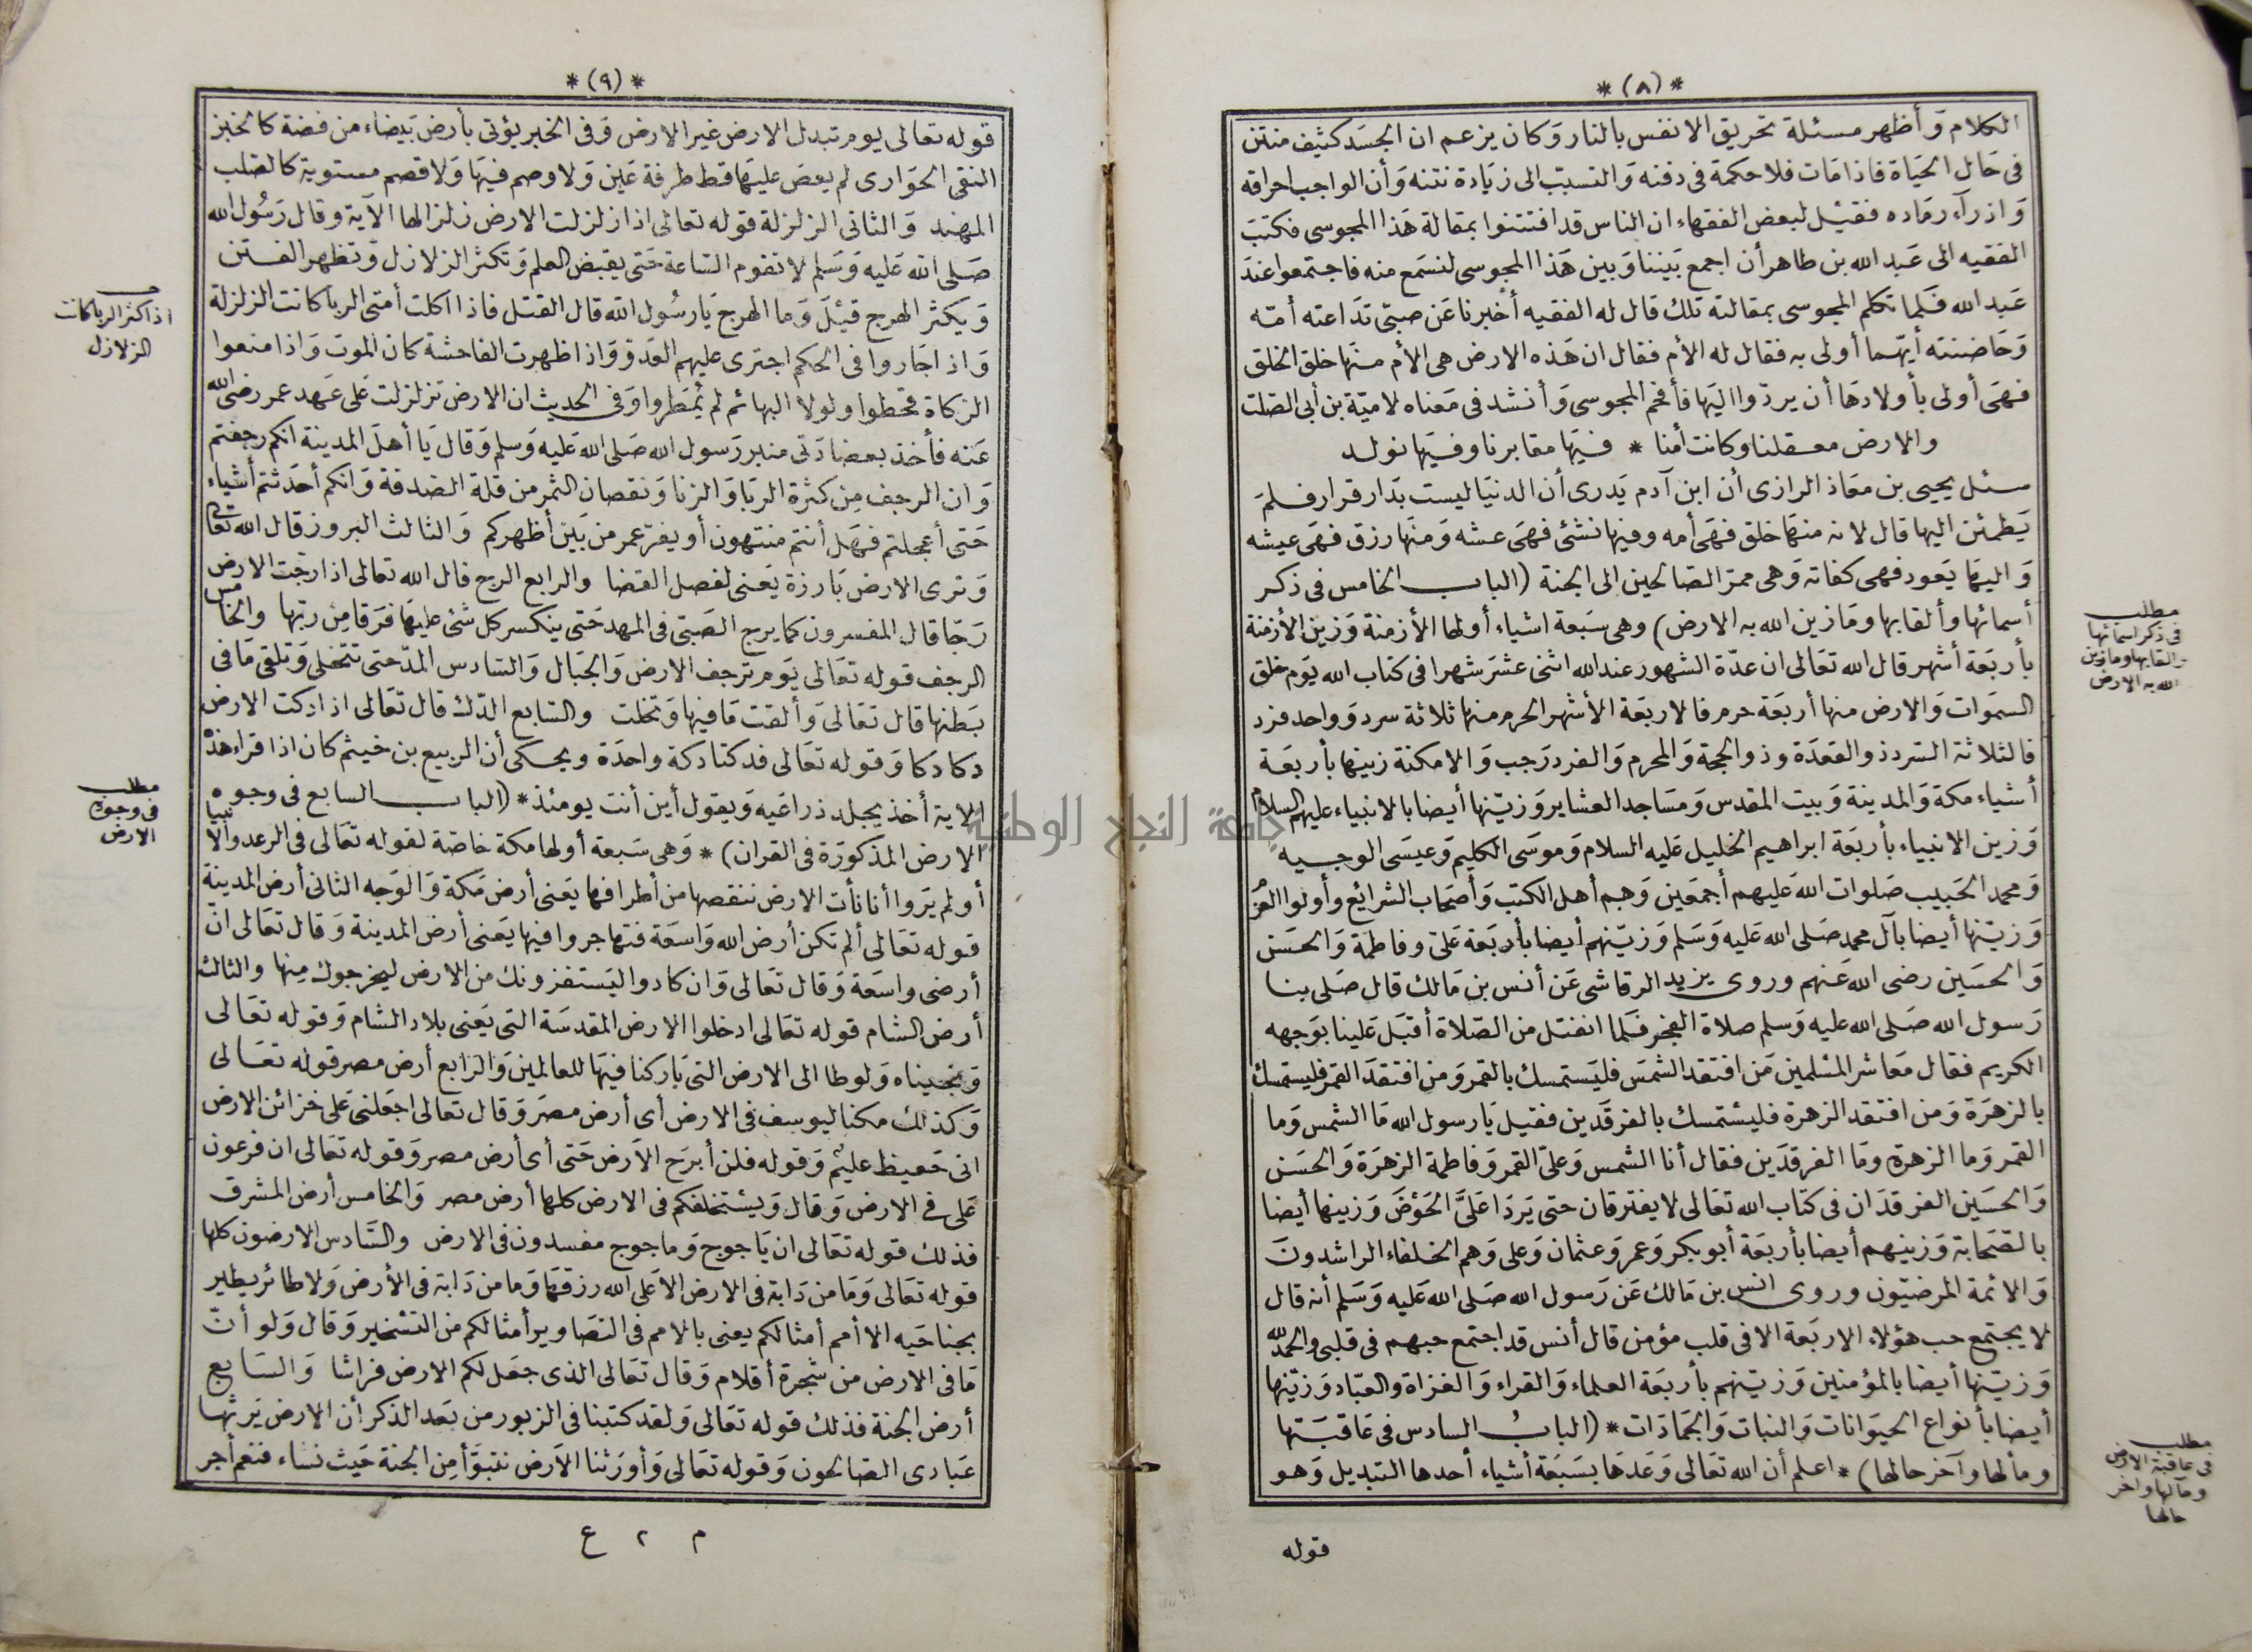 * (٨) *
الكلام وأظهر مسئلة تحريق الانفس بالنار وكان يزعم ان الجسد كثيف منتن
في حال الحياة فاذا مات فلا حكمة في دفنه والتسبب الى زيادة نتنه وأن الواجب احراقه
واذرآء رماده فقيل لبعض الفقهاء ان الناس قد افتتنوا بمقالة هذا المجوسى فكتب
الفقيه الى عبد الله بن طاهر أن اجمع بيننا وبين هذا المجوسى لنسمع منه فاجتمعوا عند
عبد الله فلما تكلم المجوسى بمقالته تلك قال له الفقيه أخبرنا عن صبيّ تداعته أمّه
وحاضنته أيهما أولى به فقال له الأم فقال ان هذه الارض هى الأم منها خلق الخلق
فهى أولى بأولادها أن يردّوا اليها فأفحم المجوسى وأنشد فى معناه لاميّة بن أبى الصّلت
والارض معقلنا وكانت أمنا * فيها مقابرنا وفيها نولد
سئل يحيى بن معاذ الرازى أن ابن آدم يدرى أن الدنيا ليست بدار قرار فلم
يطمئن اليها قال لانه منها خلق فهى أمه وفيها نشئ فهى عشه ومنها رزق فهى عيشه
واليها يعود فهى كفاته وهى ممرّ الصالحين الى الجنة (الباب الخامس فى ذكر
أسمائها وألقابها وما زين الله به الارض) وهى سبعة اشياء أولها الأزمنة وزين الأزمنة
بأربعة أشهر قال الله تعالى ان عدّة الشهور عند الله اثنى عشر شهرا فى كتاب الله يوم خلق
السموات والارض منها أربعة حرم فالاربعة الأشهر الحرم منها ثلاثة سرد وواحد فرد
فالثلاثة السرد ذو القعدة وذو الحجة والمحرم والفرد رجب والامكنة زينها بأربعة
أشياء مكة والمدينة وبيت المقدس ومساجد العشاير وزيّنها أيضا بالانبياء عليهم السلام
وزين الانبياء بأربعة ابراهيم الخليل عليه السلام وموسى الكليم وعيسى الوجيه
ومحمد الحبيب صلوات الله عليهم أجمعين وهم أهل الكتب وأصحاب الشرائع وأولوا العزم
وزيّنها أيضا بآل محمد صلى الله عليه وسلم وزيّنهم أيضا بأربعة علىّ وفاطمة والحسن
والحسين رضى الله عنهم وروى يزيد الرقاشى عن أنس بن مالك قال صلى بنا
رسول الله صلى الله عليه وسلم صلاة الفجر فلما انفتل من الصّلاة أقبل علينا بوجهه
الكريم فقال معاشر المسلمين من افتقد الشمس فليستمسك بالقمر ومن افتقد القمر فليستمسك
بالزهرة ومن افتقد الزهرة فليستمسك بالفرقدين فقيل يا رسول الله ما الشمس وما
القمر وما الزهرة وما الفرقدين فقال أنا الشمس وعلىّ القمر وفاطمة الزهرة والحسن
والحسين الفرقدان فى كتاب الله تعالى لا يفترقان حتى يردا علىّ الحوض وزينها أيضا
بالصّحابة وزينهم أيضا بأربعة أبو بكر وعمر وعثمان وعلى وهم الخلفاء الراشدون
والائمة المرضيّون وروى انس بن مالك عن رسول الله صلى الله عليه وسلم أنه قال
لا يجتمع حب هؤلاء الاربعة الا فى قلب مؤمن قال أنس قد اجتمع حبهم فى قلبى والحمد لله
وزيّنها أيضا بالمؤمنين وزيّنهم بأربعة العلماء والقراء والغزاة والعبّاد وزيّنها
أيضا بأنواع الحيوانات والنبات والجمادات * (الباب السادس فى عاقبتها
ومآلها وآخر حالها) * اعلم أن الله تعالى وعدها بسبعة أشياء أحدها التبديل وهو
قوله
مطلب
فى ذكر اسمائها
والقابها وما زين
الله به الارض
مطلب
فى عاقبة الارض
ومآلها واخر
حالها
* (٩) *
قوله تعالى يوم تبدل الارض غير الارض وفى الخبر يؤتى بأرض بيضاء من فضة كالخبز
النقى الحوارى لم يعص عليها قط طرفة عين ولا وصم فيها ولا قصم مستوية كالصلب
المهند والثانى الزلزلة قوله تعالى اذا زلزلت الارض زلزالها الآية وقال رسول الله
صلى الله عليه وسلم لا تقوم الساعة حتى يقبض العلم وتكثر الزلازل وتظهر الفتن
ويكثر الهرج قيل وما الهرج يا رسول الله قال القتل فاذا اكلت أمتى الربا كانت الزلزلة
واذا جاروا فى الحكم اجترى عليهم العدوّ واذا ظهرت الفاحشة كان الموت واذا منعوا
الزكاة قحطوا ولولا البهائم لم يمطروا وفى الحديث ان الارض تزلزلت على عهد عمر رضى الله
عنه فأخذ بعضادتى منبر رسول الله صلى الله عليه وسلم وقال يا أهل المدينة انكم رجفتم
وان الرجف من كثرة الربا والزنا ونقصان الثمر من قلة الصدقة وانكم أحدثتم أشياء
حتى أعجلتم فهل أنتم منتهون أو يفرّ عمر من بين أظهركم والثالث البروز قال الله تعالى
وترى الارض بارزة يعنى لفصل القضا والرابع الرج قال الله تعالى اذا رجت الارض
رجّا قال المفسرون كما يرج الصّبى فى المهد حتى ينكسر كل شئ عليها فرقا من ربّها والخامس
الرجف قوله تعالى يوم ترجف الارض والجبال والسادس المدّ حتى تتخلى وتلقى ما فى
بطنها قال تعالى وألقت ما فيها وتخلت والسّابع الدّك قال تعالى اذا دكت الارض
دكا دكا وقوله تعالى فدكتا دكة واحدة ويحكى أن الربيع بن خيثم كان اذا قراء هذه
الاية أخذ بجلد ذراعيه ويقول أين أنت يومئذ * (الباب السابع فى وجوه
الارض المذكورة فى القران) * وهى سبعة أولها مكة خاصّة لقوله تعالى فى الرعد والانبيا
أولم يروا أنا نأت الارض ننقصها من أطرافها يعنى أرض مكة والوجه الثانى أرض المدينة
قوله تعالى ألم تكن أرض الله واسعة فتهاجروا فيها يعنى أرض المدينة وقال تعالى ان
أرضى واسعة وقال تعالى وان كادوا ليستفزونك من الارض ليخرجوك منها والثالث
أرض الشام قوله تعالى ادخلوا الارض المقدسة التى يعنى بلاد الشام وقوله تعالى
ونجيناه ولوطا الى الارض التى باركنا فيها للعالمين والرابع أرض مصر قوله تعالى
وكذلك مكنا ليوسف فى الارض أى أرض مصر وقال تعالى اجعلنى على خزائن الارض
انى حفيظ عليم وقوله فلن أبرح الارض حتى أى أرض مصر وقوله تعالى ان فرعون
على فى الارض وقال ويستخلفكم فى الارض كلها أرض مصر والخامس أرض المشرق
فذلك قوله تعالى ان ياجوج وماجوج مفسدون فى الارض والسّادس الارضون كلها
قوله تعالى وما من دابة فى الارض الا على الله رزقها وما من دابة فى الأرض ولا طائر يطير
بجناحيه الا أمم أمثالكم يعنى بالامم فى التصاوير أمثالكم من التسخير وقال ولو أنّ
ما فى الارض من شجرة أقلام وقال تعالى الذى جعل لكم الارض فراشا والسّابع
أرض الجنة فذلك قوله تعالى ولقد كتبنا فى الزبور من بعد الذكر أن الارض يرثها
عبادى الصالحون وقوله تعالى وأورثنا الأرض نتبوّأ من الجنة حيث نشاء فنعم أجر
م ٢ ع
اذا كثر الربا كانت
الزلازل
مطلب
فى وجوه
الارض
جامعة النجاح الوطنية